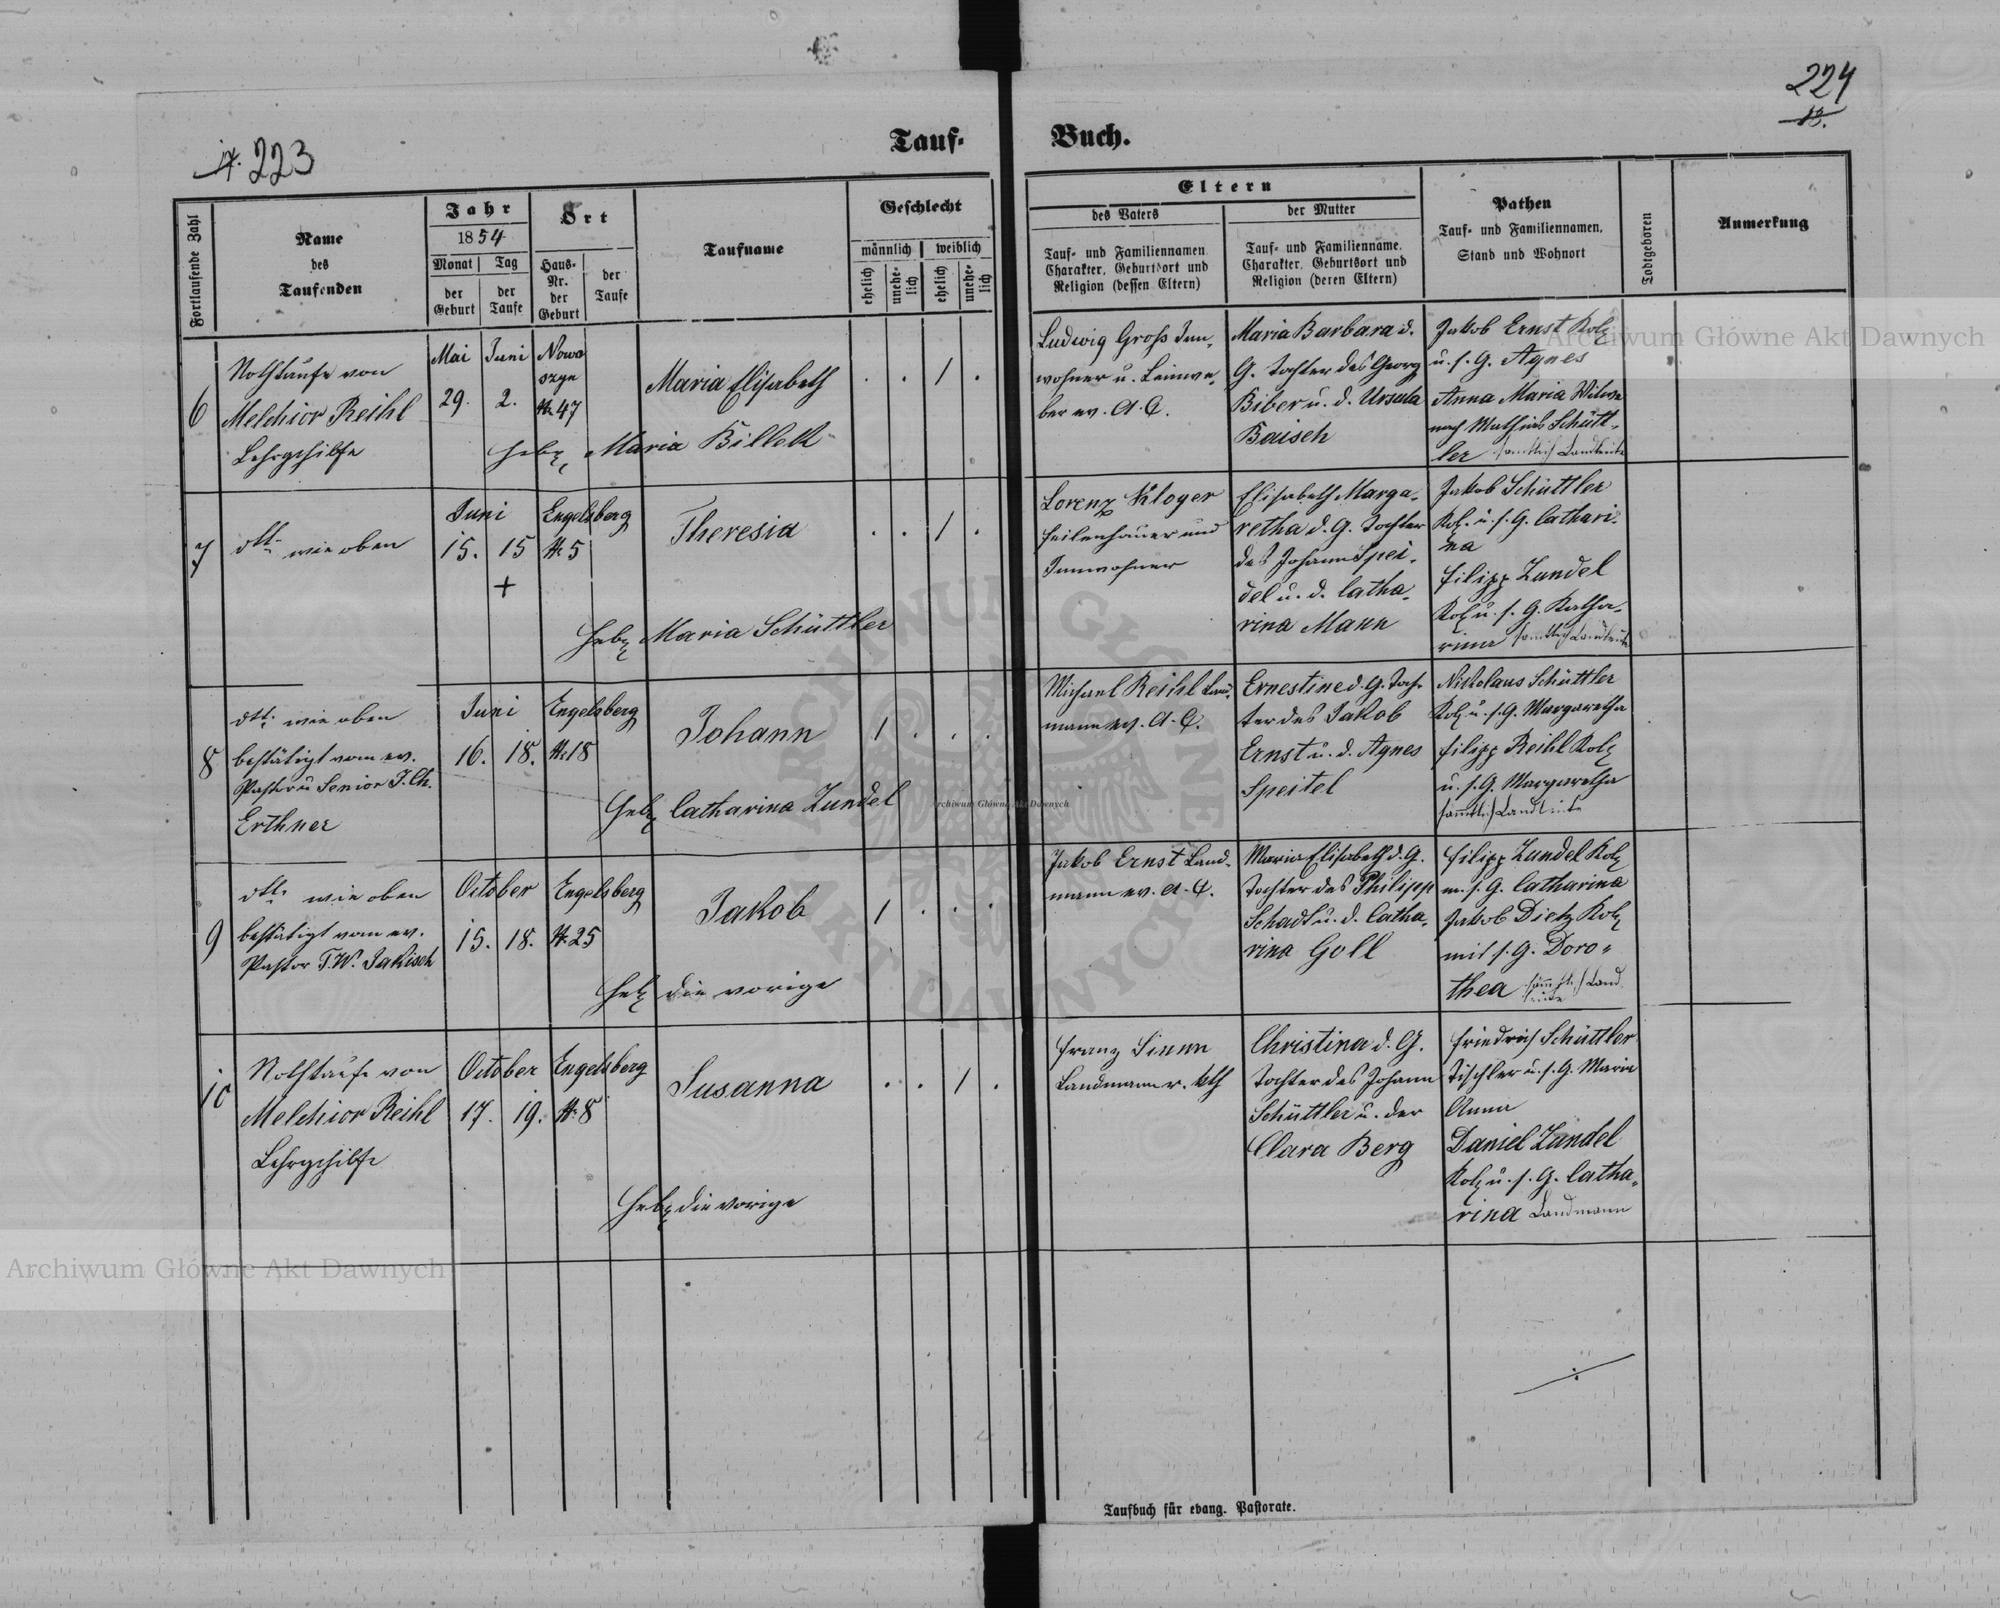 224
13.
17. 223
Tauf-
Buch.
Fortlaufende Zahl
Name
des
Taufenden
Jahr
1854
Monat
Tag
der
Geburt
der
Taufe
Ort
Haus-
Nr.
der
Geburt
der
Taufe
Taufname
Geschlecht
männlich
weiblich
ehelich
unehe-
lich
ehelich
unehe-
lich
Eltern
des Vaters
Tauf- und Familiennamen
Charakter, Geburtsort und
Religion (dessen Eltern)
der Mutter
Tauf- und Familienname,
Charakter, Geburtsort und
Religion (deren Eltern)
Pathen
Tauf- und Familiennamen,
Stand und Wohnort
Todtgeboren
Anmerkung
6
Nothtaufe von
Melchior Reihl
Lehrgehilfe
Mai
29.
Juni
2.
Nowo
szyn
N. 47
Maria Elisabeth
Heb. Maria Billek
Ludwig Groß Inn-
wohner u. Leinwe-
ber ev. A. C.
Maria Barbara d.
G. Tochter des Georg
Biber u. d. Ursula
Baisch
Jakob Ernst Kol.
u. s. G. Agnes
Anna Maria Witwe
nach Mathias Schütt-
ler sämtlich Landleute
7
dtt. wie oben
Juni
15. 15
+
Engelsberg
N. 5
Theresia
Heb. Maria Schüttler
Lorenz Kloger
Feilenhauer und
Innwohner
Elisabeth Marga-
retha d. G. Tochter
des Johann Spei-
del u. d. Catha-
rina Mann
Jakob Schüttler
Kol. u. s. G. Cathari-
na
Filipp Zundel
Kol. u. s. G. Katha-
rina sämtlich Landleute
8
dtt. wie oben
bestätigt vom ev.
Pastor u Senior J. Ch.
Erthner
Juni
16. 18.
Engelsberg
N. 18
Johann
Heb. Catharina Zundel
Michael Reihl Land-
mann ev. A. C.
Ernestine d. G. Toch-
ter des Jakob
Ernst u. d. Agnes
Speitel
Nickolaus Schüttler
Kol. u. s. G. Margaretha
Filipp Reihl Kol.
u. s. G. Margaretha
sämmtlich Landleute
9
dtt. wie oben
bestätigt vom ev.
Pastor T. W. Jakisch
October
15. 18.
Engelsberg
N. 25
Jakob
Heb. die vorige
Jakob Ernst Land-
mann ev. A. C.
Maria Elisabeth d. G.
Tochter des Philipp
Schadt u. d. Catha-
rina Goll
Filipp Zundel Kol.
m. s. G. Catharina
Jakob Dietz Kol.
mit s. G. Doro-
thea sämmtlich Land
leute
10
Nothtaufe von
Melchior Reihl
Lehrgehilfe
October
17. 19.
Engelsberg
N. 8
Susanna
Heb. die vorige
Franz Simm
Landmann r. kth
Christina d. G.
Tochter des Johann
Schüttler u. der
Clara Berg
Friedrich Schüttler
Tischler u. s. G. Maria
Anna
Daniel Zundel
Kol. u. s. G. Catha-
rina Landmann
Taufbuch für evang. Pastorate.
Archiwum Główne Akt Dawnych
Archiwum Główne Akt Dawnych
Archiwum Główne Akt Dawnych
ARCHIWUM GŁÓWNE AKT DAWNYCH